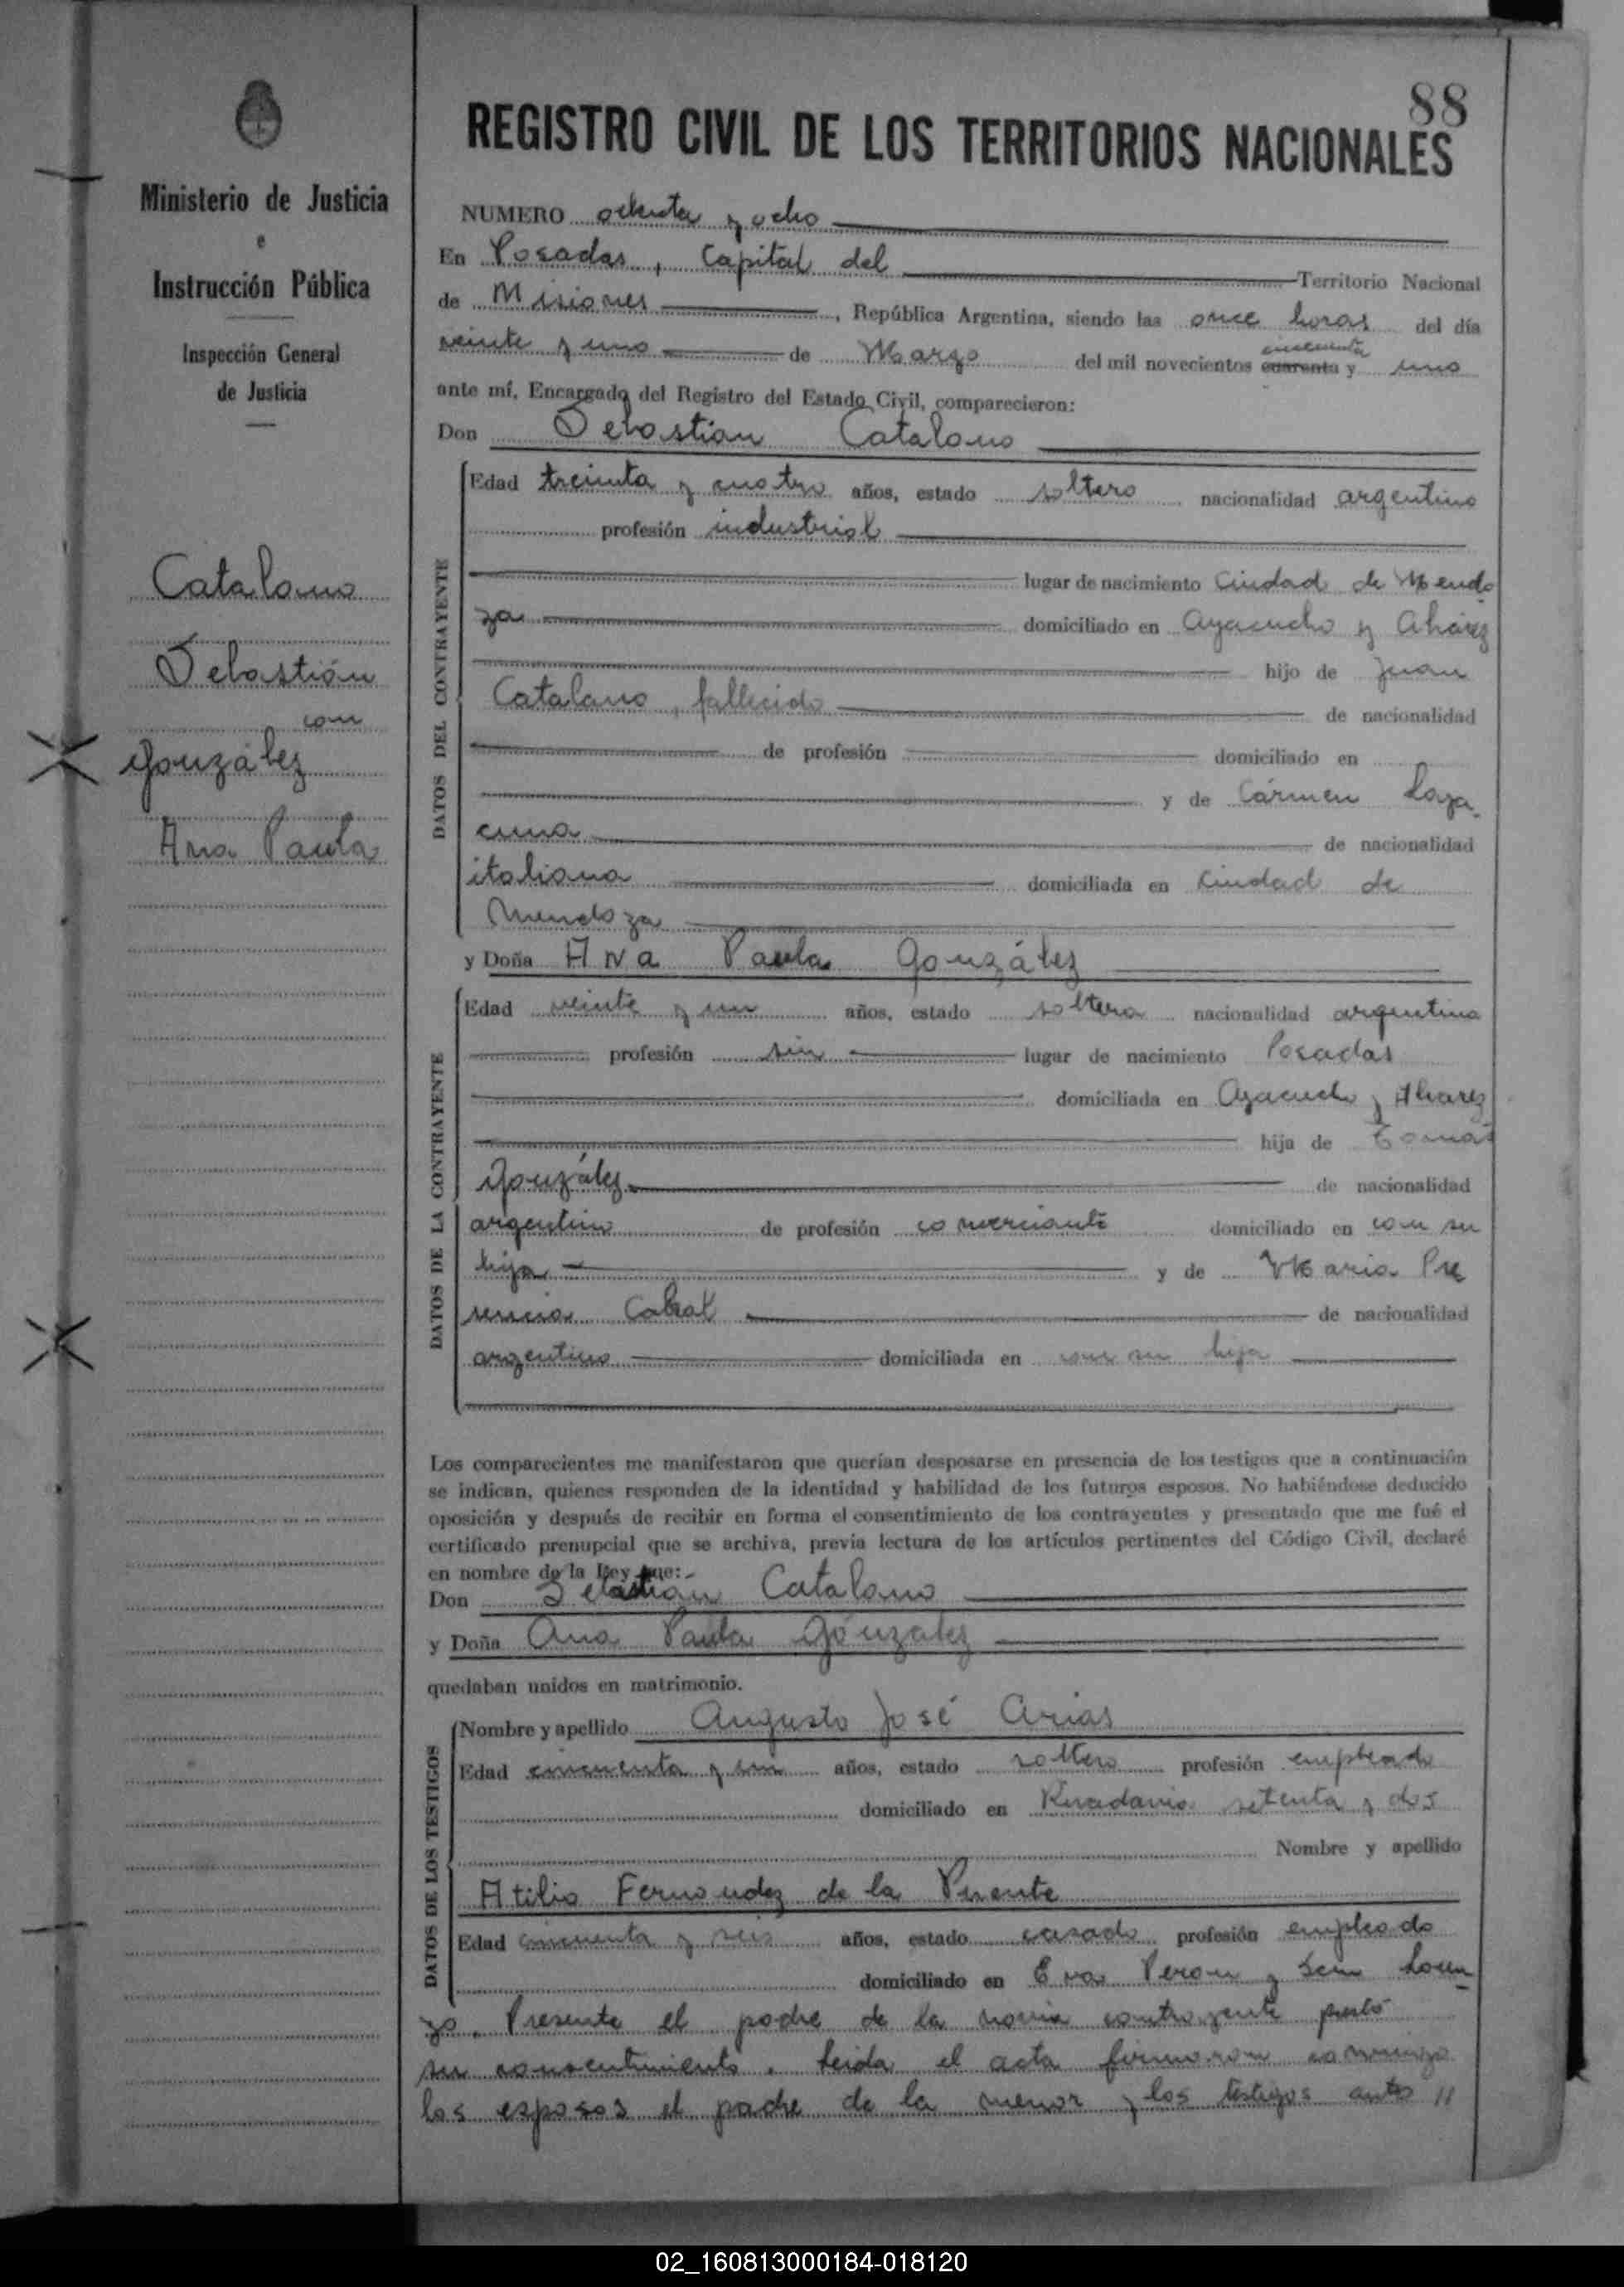 88
REGISTRO CIVIL DE LOS TERRITORIOS NACIONALES
Ministerio de Justicia
e
Instrucción Pública
Inspección General
de Justicia
Catalano
Sebastián
con
González
Ana Paula
NUMERO ochenta y ocho
En Posadas, Capital del Territorio Nacional
de Misiones, República Argentina, siendo las once horas del día
veinte y uno de Marzo del mil novecientos cuarenta cincuenta y uno
ante mí, Encargado del Registro del Estado Civil, comparecieron:
Don Sebastian Catalano
DATOS DEL CONTRAYENTE
Edad treinta y cuatro años, estado soltero nacionalidad argentino
profesión industrial
lugar de nacimiento Ciudad de Mendo
za domiciliado en Ayacucho y Alvarez
hijo de Juan
Catalano, fallecido de nacionalidad
de profesión domiciliado en
y de Cármen
de nacionalidad
italiana domiciliada en Ciudad de
Mendoza
y Doña Ana Paula González
DATOS DE LA CONTRAYENTE
Edad veinte y un años, estado soltera nacionalidad argentina
profesión sin lugar de nacimiento Posadas
domiciliada en Ayacucho y Alvarez
hija de Tomás
González de nacionalidad
argentino de profesión comerciante domiciliado en con su
hija y de Maria Pre
sencia Cabral de nacionalidad
argentina domiciliada en con su hija
Los comparecientes me manifestaron que querían desposarse en presencia de los testigos que a continuación
se indican, quienes responden de la identidad y habilidad de los futuros esposos. No habiéndose deducido
oposición y después de recibir en forma el consentimiento de los contrayentes y presentado que me fué el
certificado prenupcial que se archiva, previa lectura de los artículos pertinentes del Código Civil, declaré
en nombre de la Ley que:
Don Sebastián Catalano
y Doña Ana Paula González
quedaban unidos en matrimonio.
DATOS DE LOS TESTIGOS
Nombre y apellido Augusto José Arias
Edad cincuenta y un años, estado soltero profesión empleado
domiciliado en Rivadavia setenta y dos
Nombre y apellido
Atilio Fernandez de la Puente
Edad cincuenta y seis años, estado casado profesión empleado
domiciliado en Eva Peron y San Loren
zo. Presente el padre de la novia contrayente prestó
su consentimiento. Leida el acta firmaron conmigo
los esposos el padre de la menor y los testigos antes //
02_160813000184-018120